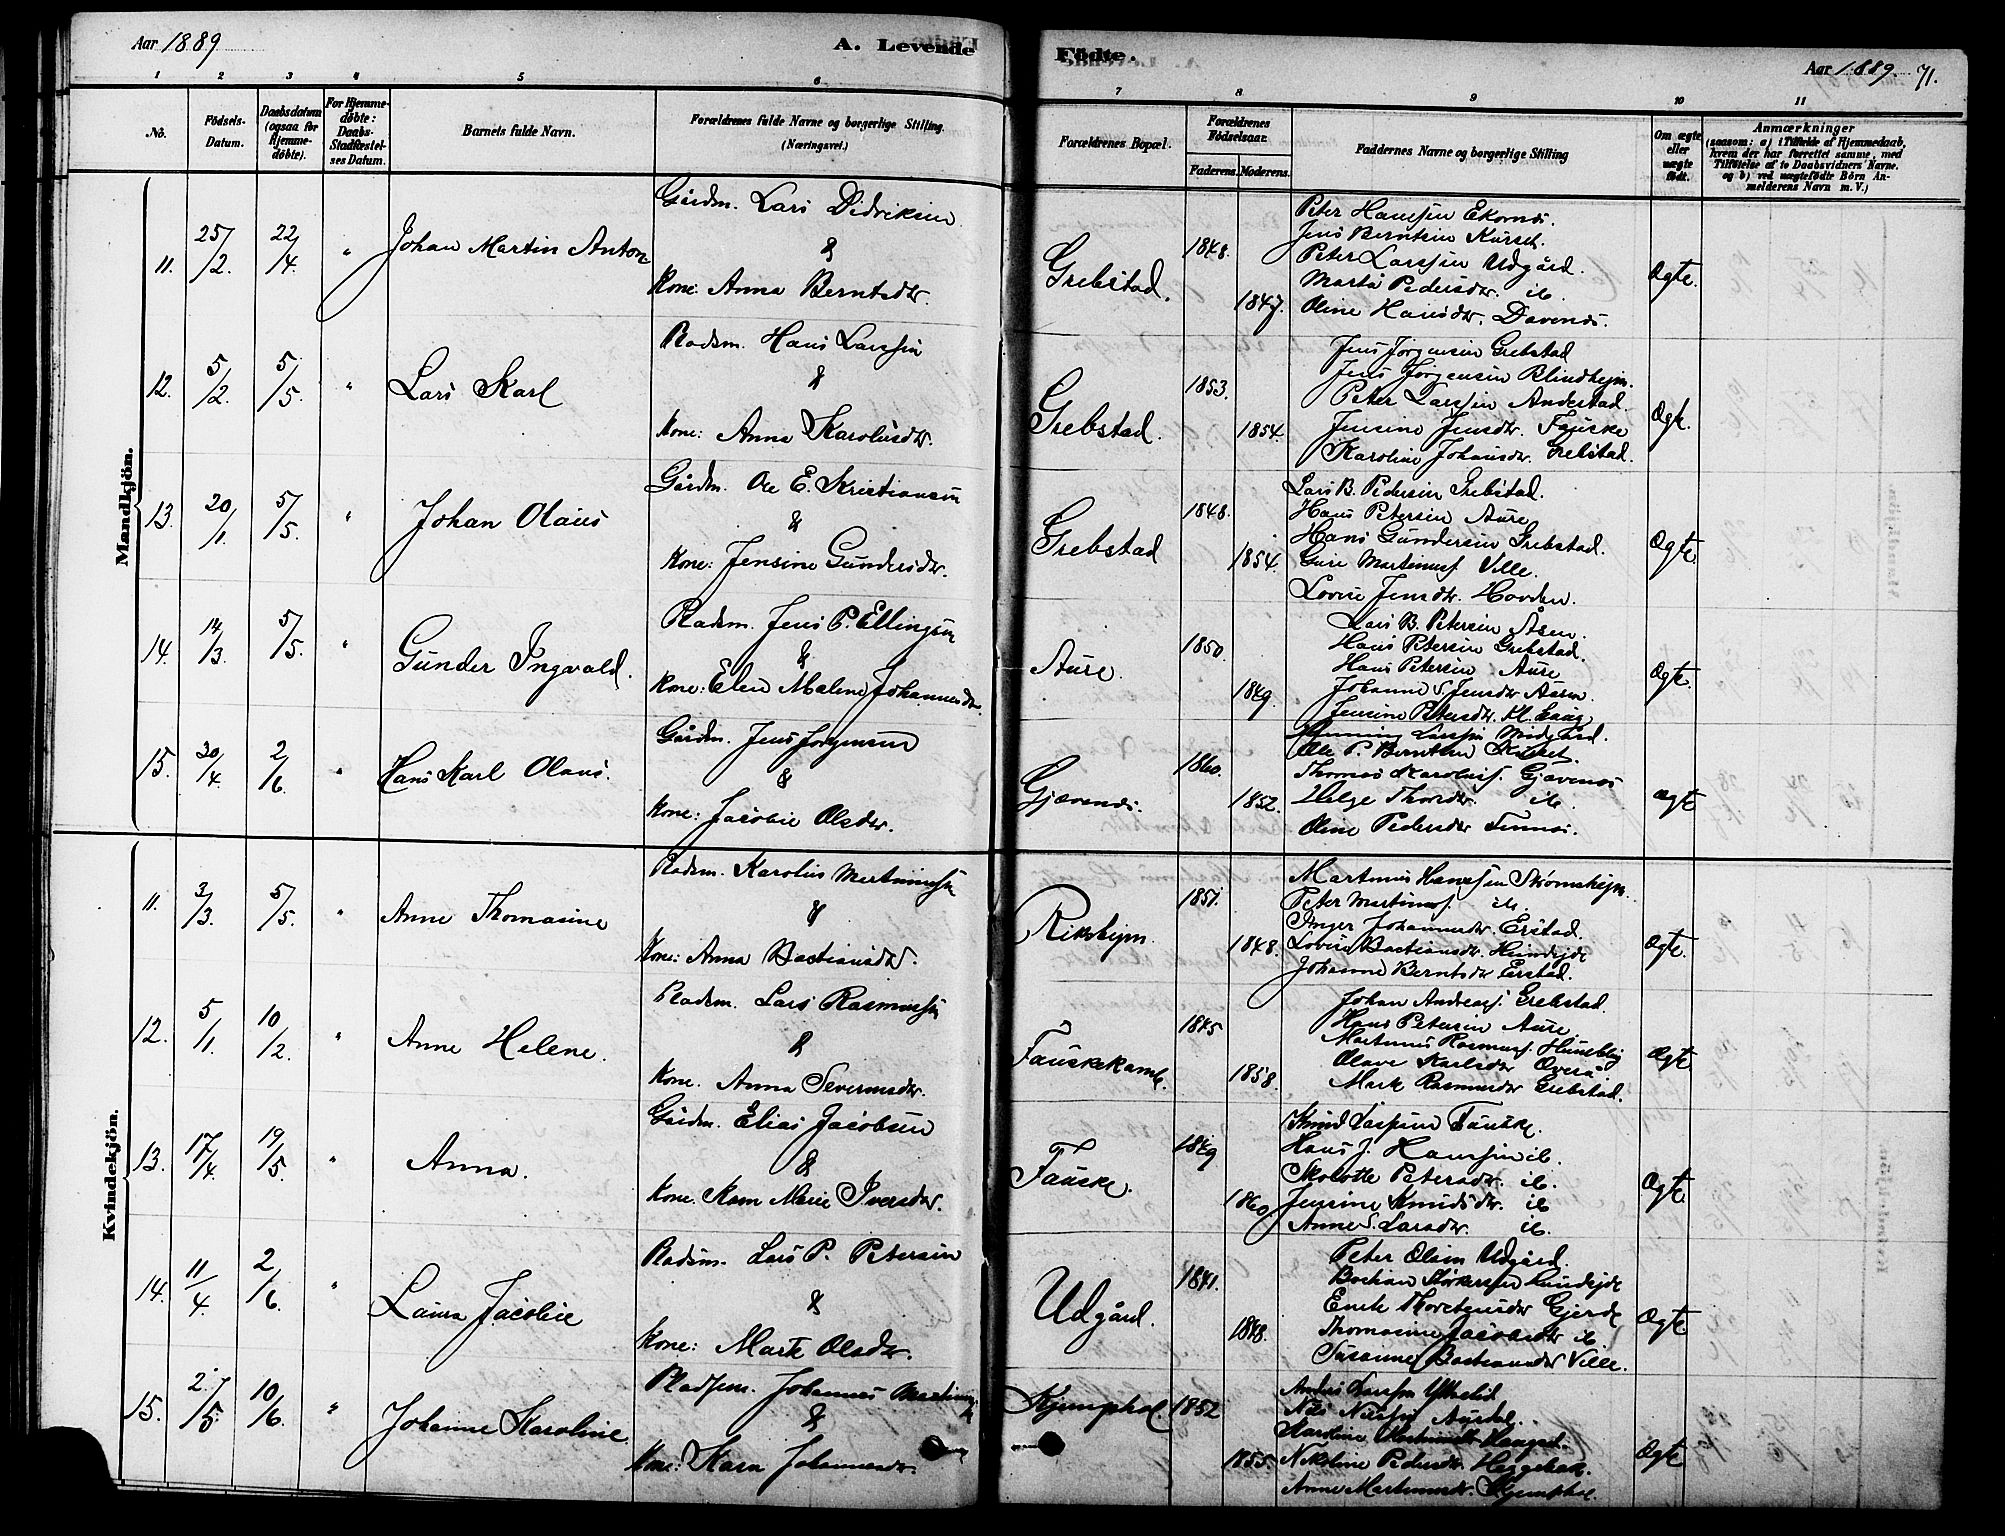 Aar 1889
A. Levende
Födte.
Aar 1889. 71.
1 2 3 4 5 6 7 8 9 10 11
No.
Födsels-
Datum.
Daabsdatum
(ogsaa for
Hjemme-
döbte).
For Hjemme-
döbte:
Daabs-
Stadfæstel-
ses Datum.
Barnets fulde Navn.
Forældrenes fulde Navne og borgerlige Stilling.
(Næringsvei.)
Forældrenes Bopæl.
Forældrenes
Födselsaar.
Faderens. Moderens.
Faddernes Navne og borgerlige Stilling
Om ægte
eller
uægte
født.
Anmærkninger
(saasom: a) i Tilfælde af Hjemmedaab,
hvem der har forrettet samme, med
Tilföielse af to Daabsvidners Navne.
og b) ved uægtefödte Börn An-
melderens Navn m. V.)
Mandkjön.
11. 25/2. 22/4. " Johan Martin Anton
Gårdm. Lars Didriksen
&
Kone: Anna Berntsdtr.
Grebstad. 1848. 1847.
Peter Hanssen Ekornæs.
Jens Berntsen Kurset.
Peter Larssen Udgård.
Marta Pedersdtr. ib.
Oline Hansdtr. Davenes.
Ægte.
12. 5/2. 5/5. " Lars Karl
Pladsm. Hans Larssen
&
Kone: Anna Karolusdtr.
Grebstad. 1853. 1854.
Jens Jörgensen Grebstad
Jens Jörgensen Blindhejm.
Peter Larssen Andestad.
Jensine Jensdtr. Fauske
Karoline Johansdtr. Grebstad.
Ægte.
13. 20/1. 5/5. " Johan Olaus
Gårdm. Ole E. Kristiansen
&
Kone: Jensine Gundersdtr.
Grebstad 1848. 1854.
Lars B. Pedersen Grebstad.
Hans Petersen Aure
Hans Gundersen Grebstad.
Gure Martinusd. Ville.
Lovise Jensdtr. Hovden.
Ægte.
14. 14/3. 5/5. " Gunder Ingvald.
Pladsm. Jens P. Ellingsen
&
Kone: Elen Malene Johannesdtr.
Aure. 1850. 1849.
Lars B. Petersen Åsen.
Hans Petersen Grebstad.
Hans Petersen Aure
Johanne S. Jensdtr Aasen
Jensine Petersdtr.
Ægte.
15. 30/4. 2/6. " Hans Karl Olaus.
Gårdm. Jens Jörgensen
&
Kone: Jacobie Olsdtr.
Gjævenæs. 1860. 1852.
Henning Larssen Midgård.
Ole P. Berntsen Kurset.
Thomas Karolusd. Gjævenæs
Helge Thoresdtr. ib.
Oline Pedersdtr
Ægte
Kvindekjön.
11. 3/3. 5/5. " Anne Thomasine
Pladsm. Karolus Martinussen
&
Kone: Anna Bastiansdtr.
Rikshejm. 1851. 1848.
Martinus Hanssen Strømshejm.
Peter Martinus. ib.
Inger Johannesdtr. Erstad.
Lovise Bastiansdtr. Hundejde
Johanne Berntsdtr Erstad.
Ægte.
12. 5/1. 10/2. " Anne Helene.
Pladsm. Lars Rasmussen
&
Kone. Anna Severinsdtr.
Fauskekamb. 1845 1858.
Johan Andreas. Grebstad.
Hans Petersen Aure
Martinus Rasmuss.
Olave Karlsdtr Overå
Marte Rasmusdtr Grebstad.
Ægte
13. 17/4. 19/5. " Anna.
Gårdm. Elias Jacobsen
&
Kone. Karn Marie Iversdtr.
Fauske. 1849 1860
Knud Jespersen Fauske.
Hans J. Hanssen ib.
Petersdtr. ib.
Jensine Knudsdtr. ib
Anne S. Larsdtr. ib.
Ægte.
14. 11/4. 2/6. " Laura Jacobie
Pladsm. Lars P. Petersen
&
Kone: Marte Olsdtr.
Udgård. 1841. 1848.
Peter Olsen Udgård.
Bastian Hundejde
Emte Thorstensdtr Gjerde
Thomasine Jacobsdtr ib
Susanne Bastiansdtr Ville.
Ægte.
15. 2/5. 10/6. " Johanne Karoline.
Pladsm. Johannes Martinus.
&
Kone: Karn Johannesdtr.
Kjemphol. 1852 1855
Anders Larssen
Nils Nilssen Aursdal.
Karoline
Nikoline Pedersdtr Heggebak.
Anne Martinusdtr. Kjemphol.
Ægte